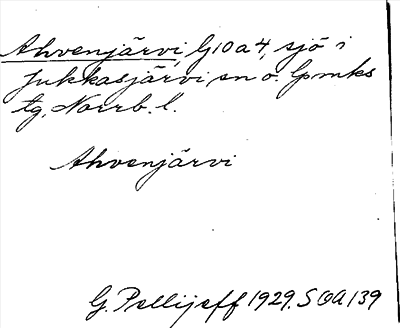 Ahvenjärvi, G10a4, sjö i
Jukkasjärvi, sn o. Lpmks
tg, Norrb. l.
Ahvenjärvi
G. Pellijeff 1929. SOA 139